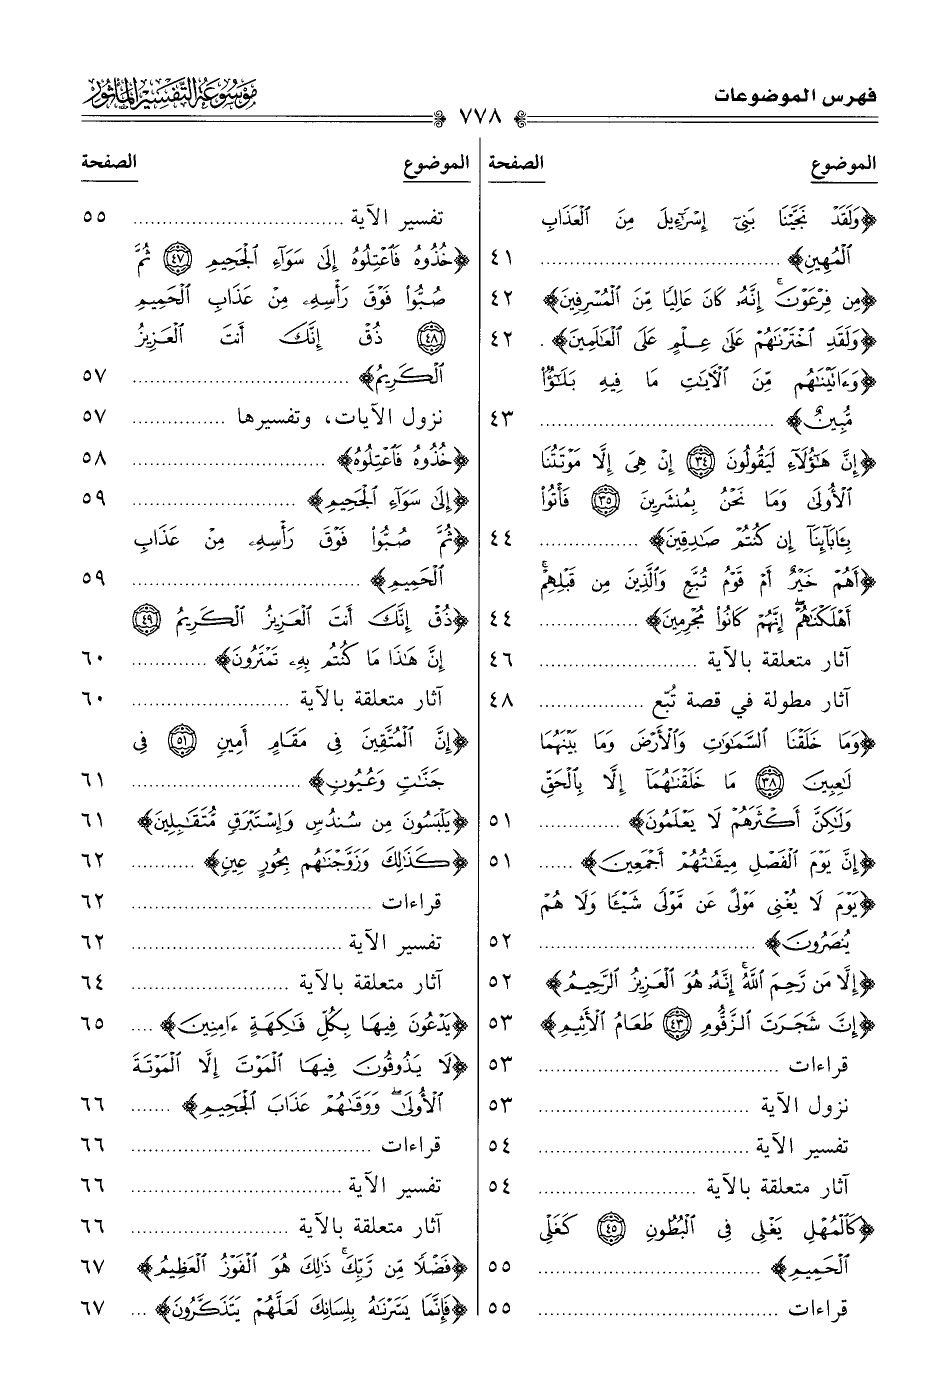 فهرس الموضوعات
٧٧٨
موسوعة التفسير المأثور
الموضوع الصفحة
﴿وَلَقَدْ نَجَّيْنَا بَنِي إِسْرَائِيلَ مِنَ الْعَذَابِ
الْمُهِينِ﴾ ٤١
﴿مِن فِرْعَوْنَ إِنَّهُ كَانَ عَالِيًا مِّنَ الْمُسْرِفِينَ﴾ ٤٢
﴿وَلَقَدِ اخْتَرْنَاهُمْ عَلَىٰ عِلْمٍ عَلَى الْعَالَمِينَ﴾ . ٤٢
﴿وَءَاتَيْنَاهُم مِّنَ الْآيَاتِ مَا فِيهِ بَلَاؤٌا
مُّبِينٌ﴾ ٤٣
﴿إِنَّ هَٰؤُلَاءِ لَيَقُولُونَ ٣٤ إِنْ هِيَ إِلَّا مَوْتَتُنَا
الْأُولَىٰ وَمَا نَحْنُ بِمُنشَرِينَ ٣٥ فَأْتُوا
بِآبَائِنَا إِن كُنتُمْ صَادِقِينَ﴾ ٤٤
﴿أَهُمْ خَيْرٌ أَمْ قَوْمُ تُبَّعٍ وَالَّذِينَ مِن قَبْلِهِمْ
أَهْلَكْنَاهُمْ إِنَّهُمْ كَانُوا مُجْرِمِينَ﴾ ٤٤
آثار متعلقة بالآية ٤٦
آثار مطولة في قصة تُبّع ٤٨
﴿وَمَا خَلَقْنَا السَّمَاوَاتِ وَالْأَرْضَ وَمَا بَيْنَهُمَا
لَاعِبِينَ ٣٨ مَا خَلَقْنَاهُمَا إِلَّا بِالْحَقِّ
وَلَٰكِنَّ أَكْثَرَهُمْ لَا يَعْلَمُونَ﴾ ٥١
﴿إِنَّ يَوْمَ الْفَصْلِ مِيقَاتُهُمْ أَجْمَعِينَ﴾ ٥١
﴿يَوْمَ لَا يُغْنِي مَوْلًى عَن مَّوْلًى شَيْئًا وَلَا هُمْ
يُنصَرُونَ﴾ ٥٢
﴿إِلَّا مَن رَّحِمَ اللَّهُ إِنَّهُ هُوَ الْعَزِيزُ الرَّحِيمُ﴾ ٥٢
﴿إِنَّ شَجَرَتَ الزَّقُّومِ ٤٣ طَعَامُ الْأَثِيمِ﴾ ٥٣
قراءات ٥٣
نزول الآية ٥٣
تفسير الآية ٥٤
آثار متعلقة بالآية ٥٤
﴿كَالْمُهْلِ يَغْلِي فِي الْبُطُونِ ٤٥ كَغَلْيِ
الْحَمِيمِ﴾ ٥٥
قراءات ٥٥
الموضوع الصفحة
تفسير الآية ٥٥
﴿خُذُوهُ فَاعْتِلُوهُ إِلَىٰ سَوَاءِ الْجَحِيمِ ٤٧ ثُمَّ
صُبُّوا فَوْقَ رَأْسِهِ مِنْ عَذَابِ الْحَمِيمِ
٤٨ ذُقْ إِنَّكَ أَنتَ الْعَزِيزُ
الْكَرِيمُ﴾ ٥٧
نزول الآيات، وتفسيرها ٥٧
﴿خُذُوهُ فَاعْتِلُوهُ﴾ ٥٨
﴿إِلَىٰ سَوَاءِ الْجَحِيمِ﴾ ٥٩
﴿ثُمَّ صُبُّوا فَوْقَ رَأْسِهِ مِنْ عَذَابِ
الْحَمِيمِ﴾ ٥٩
﴿ذُقْ إِنَّكَ أَنتَ الْعَزِيزُ الْكَرِيمُ ٤٩
إِنَّ هَٰذَا مَا كُنتُم بِهِ تَمْتَرُونَ﴾ ٦٠
آثار متعلقة بالآية ٦٠
﴿إِنَّ الْمُتَّقِينَ فِي مَقَامٍ أَمِينٍ ٥١ فِي
جَنَّاتٍ وَعُيُونٍ﴾ ٦١
﴿يَلْبَسُونَ مِن سُندُسٍ وَإِسْتَبْرَقٍ مُّتَقَابِلِينَ﴾ ٦١
﴿كَذَٰلِكَ وَزَوَّجْنَاهُم بِحُورٍ عِينٍ﴾ ٦٢
قراءات ٦٢
تفسير الآية ٦٢
آثار متعلقة بالآية ٦٤
﴿يَدْعُونَ فِيهَا بِكُلِّ فَاكِهَةٍ ءَامِنِينَ﴾ ٦٥
﴿لَا يَذُوقُونَ فِيهَا الْمَوْتَ إِلَّا الْمَوْتَةَ
الْأُولَىٰ وَوَقَاهُمْ عَذَابَ الْجَحِيمِ﴾ ٦٦
قراءات ٦٦
تفسير الآية ٦٦
آثار متعلقة بالآية ٦٦
﴿فَضْلًا مِّن رَّبِّكَ ذَٰلِكَ هُوَ الْفَوْزُ الْعَظِيمُ﴾ ٦٧
﴿فَإِنَّمَا يَسَّرْنَاهُ بِلِسَانِكَ لَعَلَّهُمْ يَتَذَكَّرُونَ﴾ ٦٧